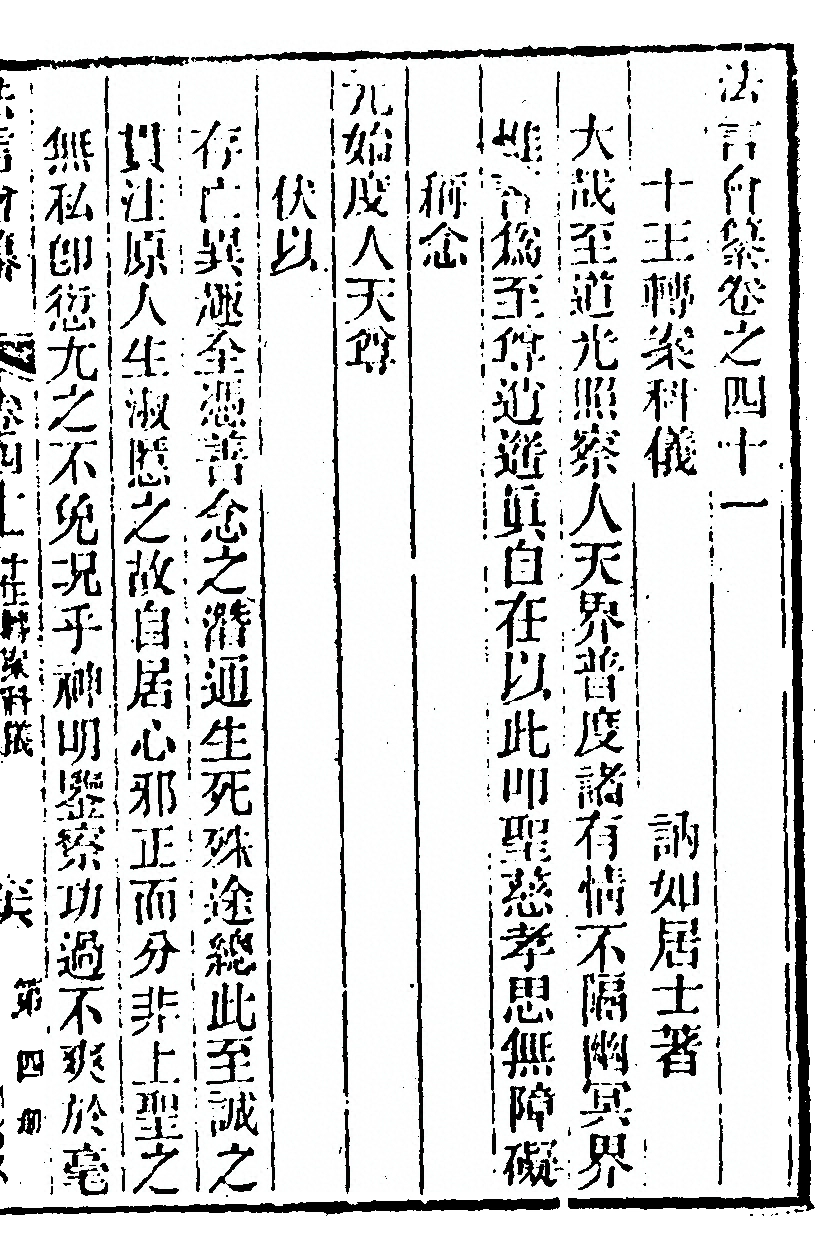 法言會纂卷之四十一
十王轉案科儀 訥如居士著
大哉至道光照察人天界普度諸有情不隔幽冥界
爲至尊逍遙眞自在以此叩聖慈孝思無障礙
稱念
元始度人天尊
伏以
存亡異趣全憑善念之潛通生死殊途總此至誠之
貫注原人生淑慝之故自居心邪正而分非上聖之
無私卽愆尤之不免況乎神明鑒察功過不爽於毫
卷四十一 十王轉案科儀 第四册